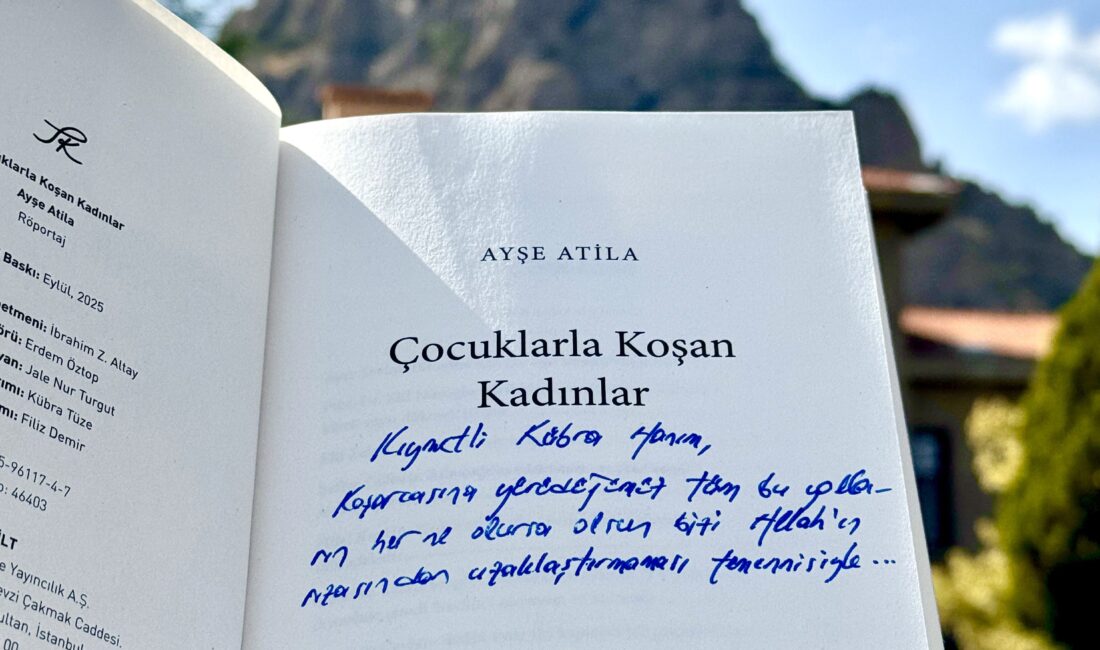 klarla Koşan Kadınlar
Ayşe Atila
Röportaj
Baskı: Eylül, 2025
etmeni: İbrahim Z. Altay
örü: Erdem Öztop
yan: Jale Nur Turgut
ımı: Kübra Tüze
mı: Filiz Demir
5-96117-4-7
o: 46403
İLT
e Yayıncılık A.Ş.
evzi Çakmak Caddesi.
ultan, İstanbul
00
AYŞE ATİLA
Çocuklarla Koşan
Kadınlar
Kıymetli Kübra Hanım,
Koşarcasına yürüdüğümüz tüm bu yolla-
rın her ne olursa olsun bizi Allah'ın
rızasından uzaklaştırmaması temennisiyle...